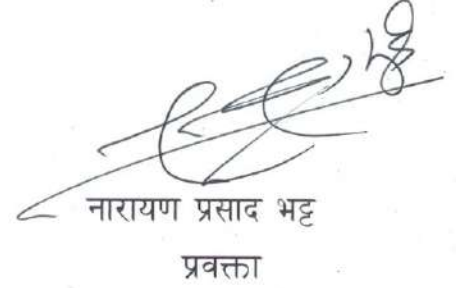 नारायण प्रसाद भट्ट
प्रवक्ता